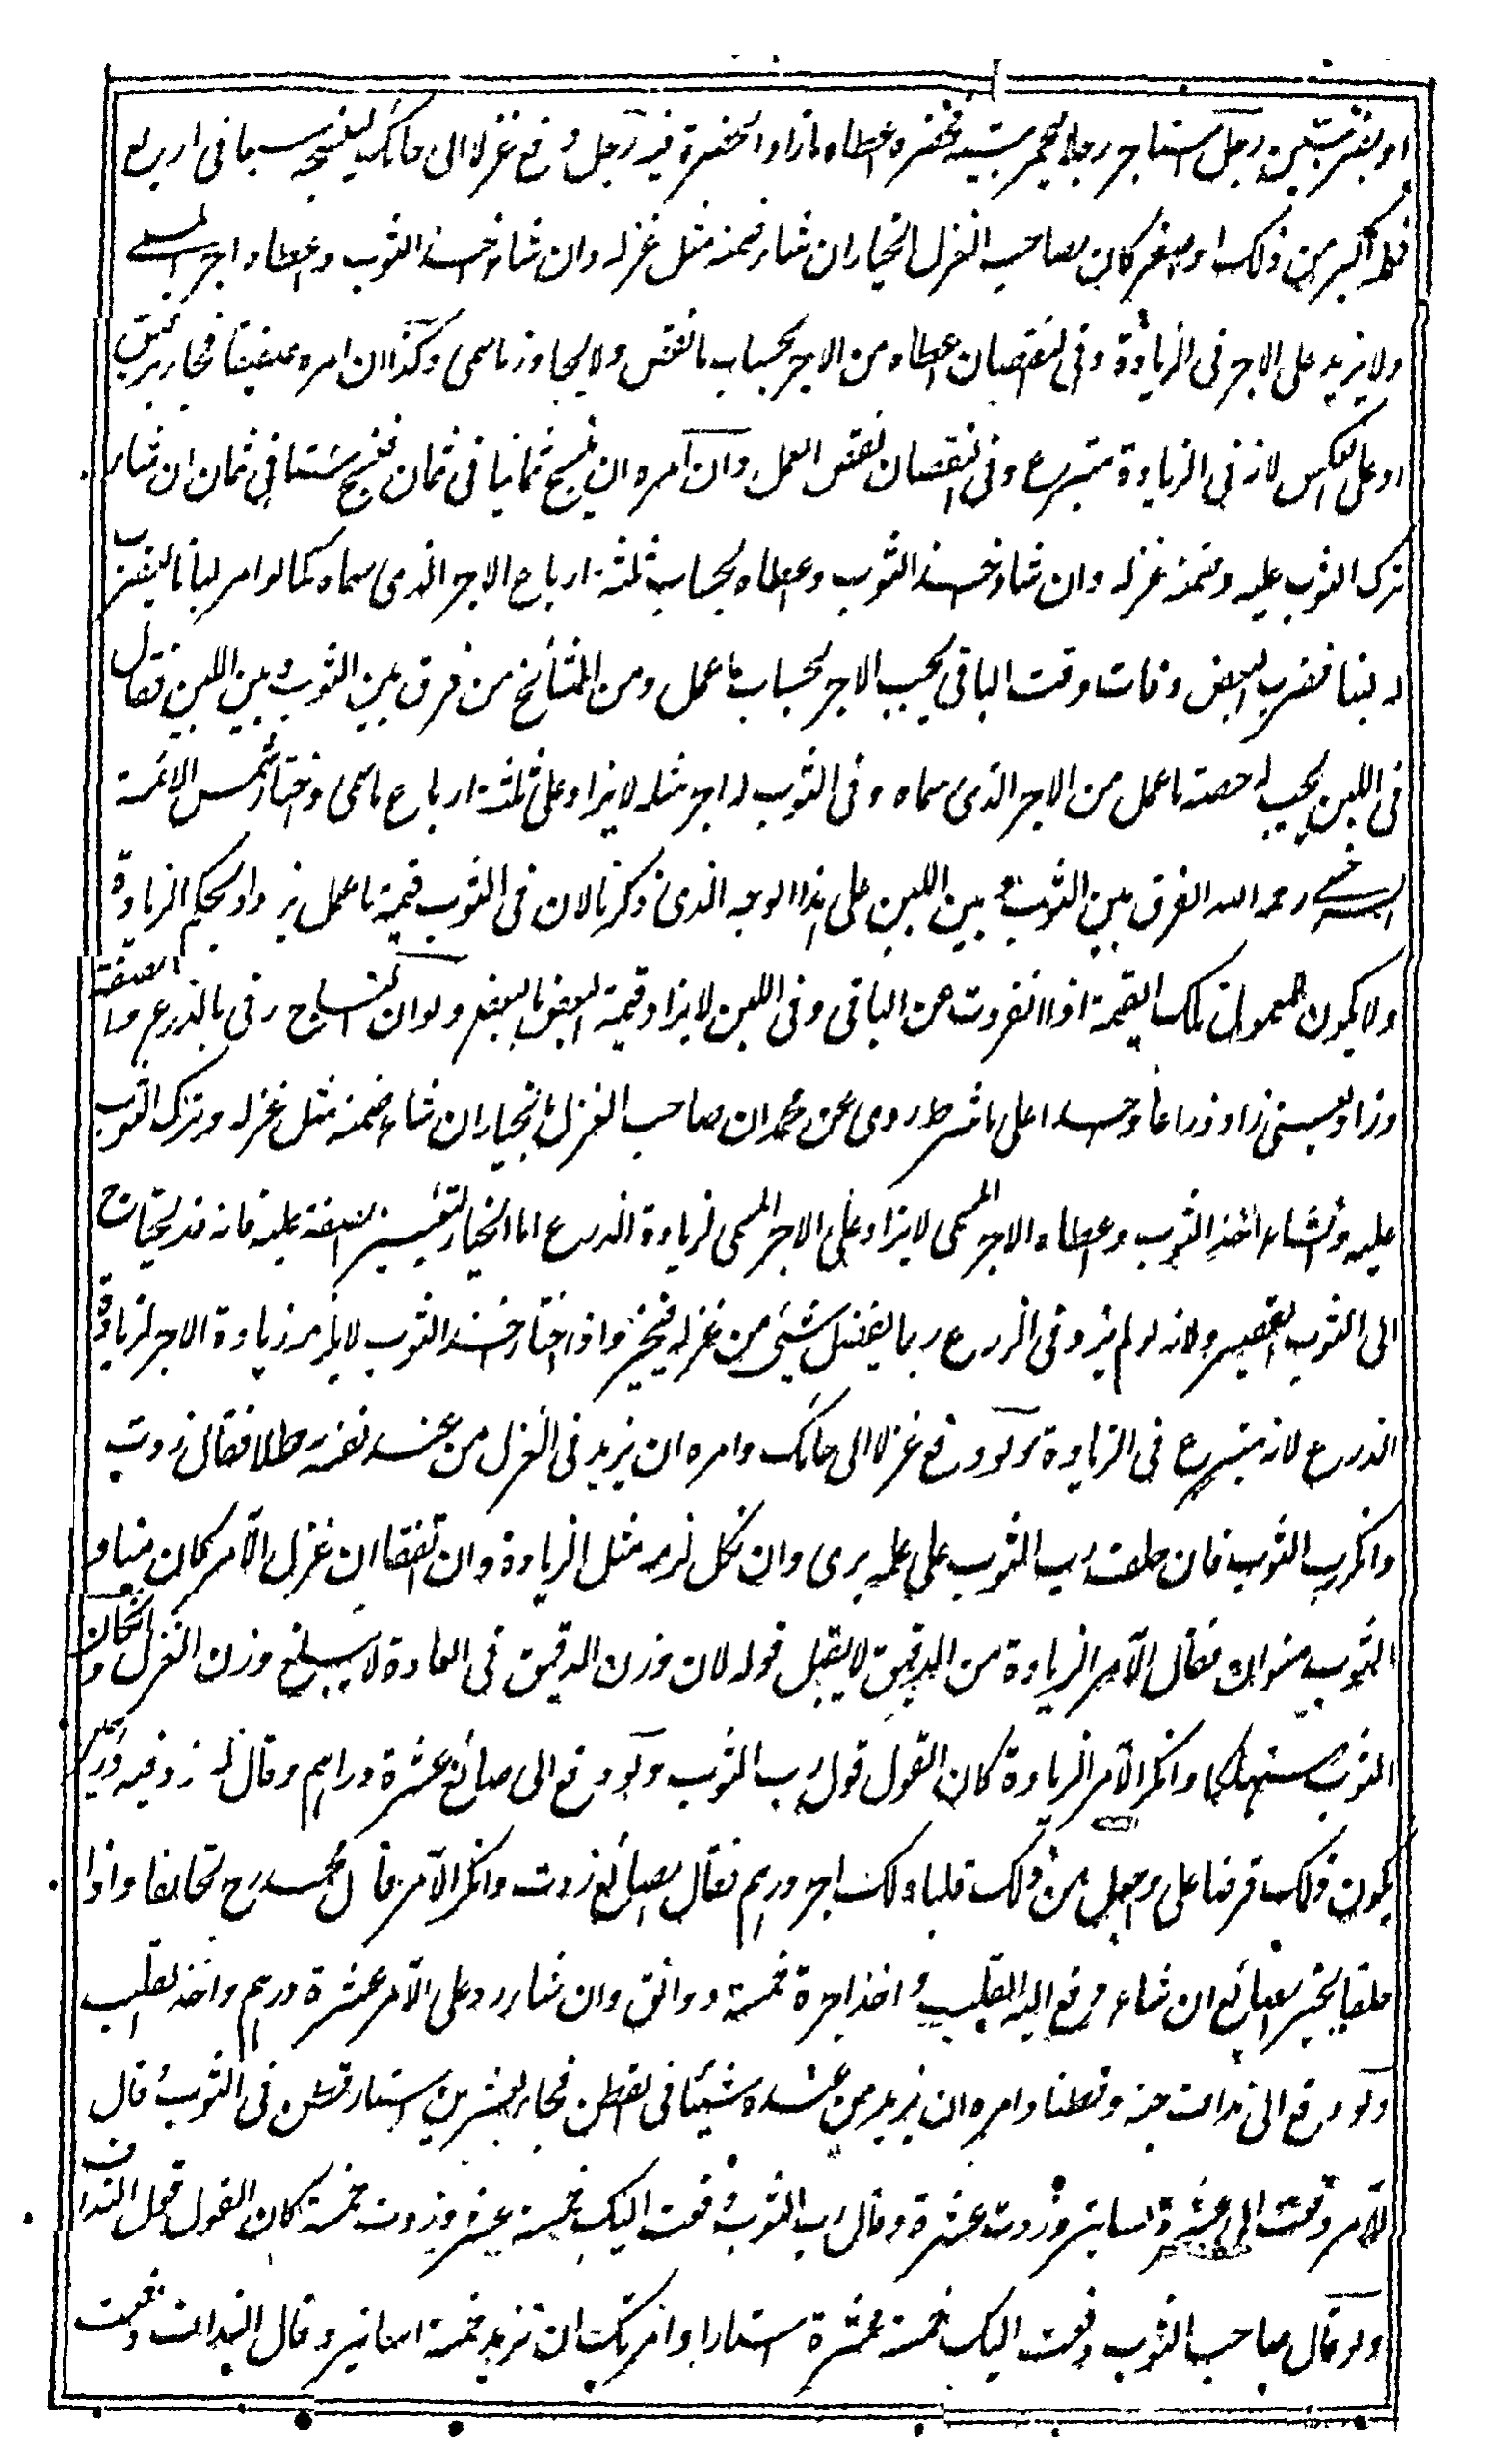 او بقر بتين رجل استاجر رجلا ليحمر بيته فحمره اعطاه ما زاد الحمرة فيه رجل دفع غزلا الى حائك لينسجه سبعا فى اربع
فعمله اكبر من ذلك او اصغر كان لصاحب الغزل الخيار ان شاء ضمنه مثل غزله وان شاء اخذ الثوب واعطاه اجر المسمى
ولا يزيد على الاجر فى الزيادة وفى النقصان اعطاه من الاجر بحساب ما نقص ولا يجاوز ما سمى وكذا ان امره صفيقا فجاء برقيق
او على العكس لانه فى الزيادة متبرع وفى النقصان نقص العمل وان امره ان ينسج ثمانيا فى ثمان فنسج ستا فى ثمان ان شاء
ترك الثوب عليه وضمنه غزله وان شاء اخذ الثوب واعطاه بحساب ثلثة ارباع الاجر الذى سماه كما لو امر لبانا ليضرب
له لبنا فضرب البعض وفات وقت الباقى يجب الاجر بحساب ما عمل ومن المشائخ من فرق بين الثوب وبين اللبن فقال
فى اللبن يجب له حصة ما عمل من الاجر الذى سماه وفى الثوب له اجر مثله لا يزاد على ثلثة ارباع ما سمى واختار شمس الائمة
السرخسى رحمه الله الفرق بين الثوب وبين اللبن على هذا الوجه الذى ذكرنا لان فى الثوب قيمة ما عمل يزداد بحكم الزيادة
ولا يكون للمعمول تلك القيمة اذا انفردت عن الباقى وفى اللبن لا يزاد قيمة البعض بالبعض ولو ان النساج وفى بالذرع والصفة
وزاد يعنى زاد ذراعا واحدا على ما شرط روى عن محمد ان صاحب الغزل بالخيار ان شاء ضمنه مثل غزله وترك الثوب
عليه وان شاء اخذ الثوب واعطاه الاجر المسمى لا يزاد على الاجر المسمى لزيادة الذرع اما الخيار لتغيير الصفة عليه فانه قد يحتاج
الى الثوب القصير ولانه لو لم يزد فى الذرع ربما يفضل شيئ من غزله فيخير واذا اختار اخذ الثوب لا يلزمه زيادة الاجر لزيادة
الذرع لانه متبرع فى الزيادة ولو دفع غزلا الى حائك وامره ان يزيد فى الغزل من عند نفسه رطلا فقال زدت
وانكر رب الثوب فان حلف رب الثوب على علمه برى وان نكل لزمه مثل الزيادة وان اتفقا ان غزل الآمر كان منا و
الثوب منوان فقال الآمر الزيادة من الدقيق لا يقبل قوله لان وزن الدقيق فى العادة لا يبلغ وزن الغزل وان كان
الثوب مستهلكا وانكر الآمر الزيادة كان القول قول رب الثوب ولو دفع الى صائغ عشرة دراهم وقال له زد فيه درهمين
يكون ذلك قرضا على واجعل من ذلك قلبا ولك اجر درهم فقال الصائغ زدت وانكر الآمر قال محمد رح تحالفا واذا
حلفا يخير الصائغ ان شاء دفع اليه القلب واخذ اجرة خمسة دوانق وان شاء رد على الآمر عشرة درهم واخذ القلب
ولو دفع الى نداف جبة وقطنا وامره ان يزيد من عنده شيئا فى القطن فجاء بعشرين استار قطن فى الثوب وقال
للآمر دفعت الى عشرة اساتير وزدت عشرة وقال رب الثوب دفعت اليك خمسة عشر وزدت خمسة كان القول قول النداف
ولو قال صاحب الثوب دفعت اليك خمسة عشرة استارا وامرتك ان تزيد خمسة اساتير وقال النداف دفعت